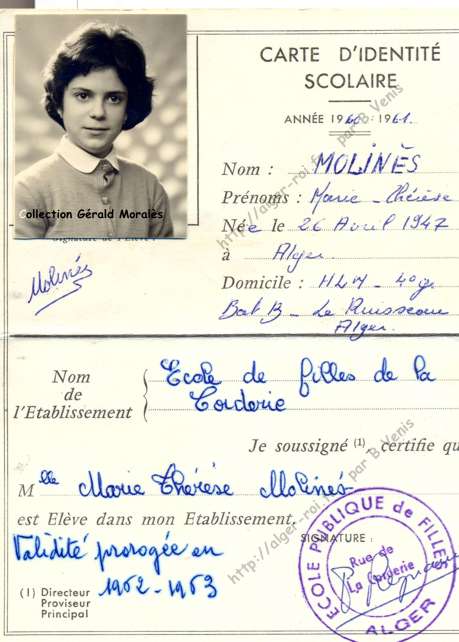 CARTE D'IDENTITÉ
SCOLAIRE
ANNÉE 1960-1961.
Nom : MOLINÈS
Prénoms : Marie-Thérèse
Née le 26 Avril 1947
à Alger
Domicile : HLM - 4º gr
Bat B - Le Ruisseau
Alger.
Collection Gérald Moralès
Signature de l'Élève :
Molinés
http://alger-roi.fr par B.Venis
Nom
de
l'Etablissement
Ecole de filles de la
Corderie
Je soussigné (1), certifie qu
Mlle Marie Thérèse Molinés
est Elève dans mon Etablissement.
Validité prorogée en
1962-1963
SIGNATURE :
(1) Directeur
Proviseur
Principal
ECOLE PUBLIQUE de FILLES
Rue de
La Corderie
ALGER
http://alger-roi.fr par B.Venis